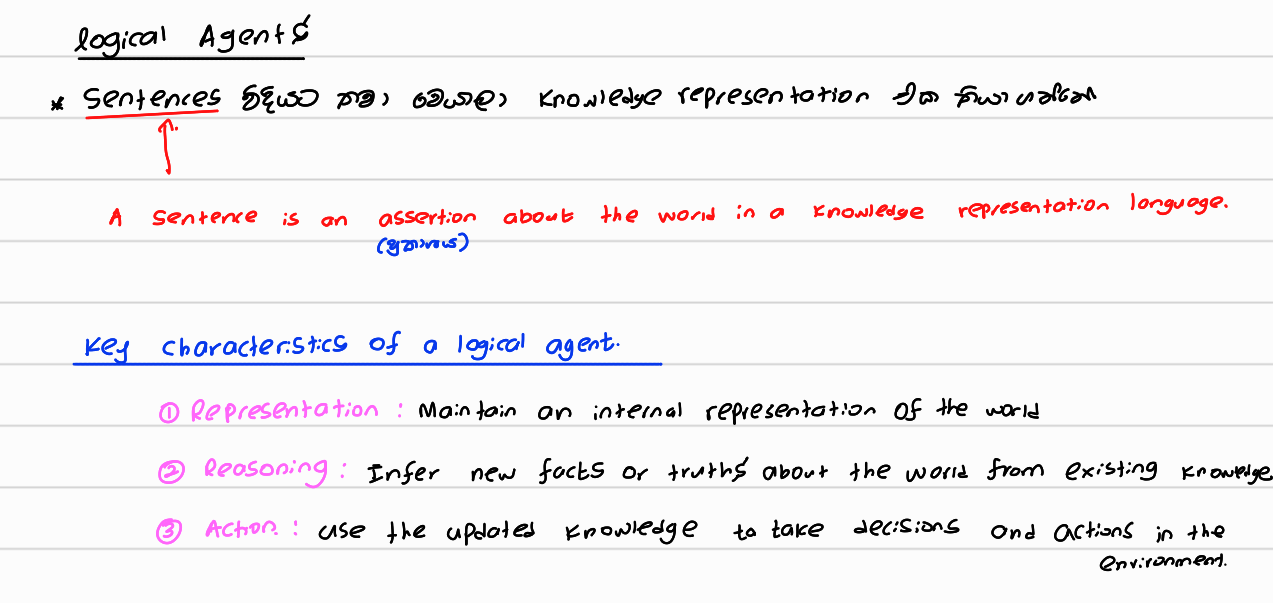 logical Agents
* Sentences විදියට තමා මෙයාලා knowledge representation එක තියාගන්නේ
A sentence is an assertion about the world in a knowledge representation language.
(ප්‍රකාශය)
Key characteristics of a logical agent.
① Representation : Maintain an internal representation of the world
② Reasoning : Infer new facts or truths about the world from existing knowledge
③ Action : use the updated knowledge to take decisions and actions in the
environment.